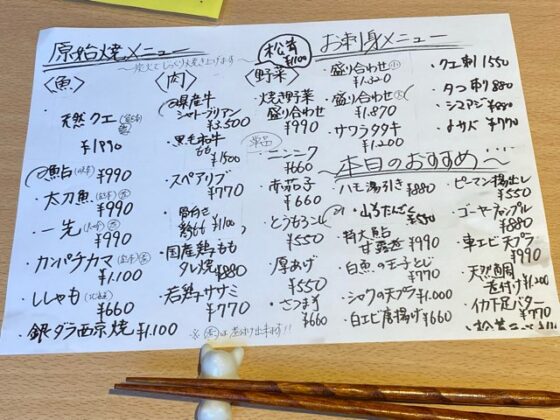 原始焼メニュー
〜炭火でじっくり焼き上げます〜
〈魚〉
天然クエ
¥1990
鮎 ¥990
太刀魚
¥990
一先
¥990
カンパチカマ
¥1.100
ししゃも
¥660
銀ダラ西京焼 ¥1.100
〈肉〉
県産牛
シャトーブリアン
¥3.500
黒毛和牛
¥1500
スペアリブ
¥770
¥1100
国産鶏もも
タレ焼 ¥880
若鶏ササミ
¥770
松茸
¥1100
〈野菜〉
焼き野菜
盛り合わせ
¥990
単品
ニンニク
¥660
赤茄子
¥660
とうもろこし
¥550
厚あげ
¥550
さつま芋
¥660
お刺身メニュー
盛り合わせ 小
¥1.320
盛り合わせ 大
¥1.870
サワラタタキ
¥1.200
クエ刺 1550
タコ刺 880
シマアジ ¥880
¥770
本日のおすすめ
ハモ湯引き ¥880
山芋たんざく ¥550
特大鮎
甘露煮 ¥990
白魚の玉子とじ
¥770
シャクの天プラ ¥1.000
白エビ唐揚げ ¥660
ピーマン揚出し
¥550
ゴーヤーチャンプル
¥880
車エビ天プラ
¥990
天然鯛
¥1.200
イカ下足バター
¥770
松茸